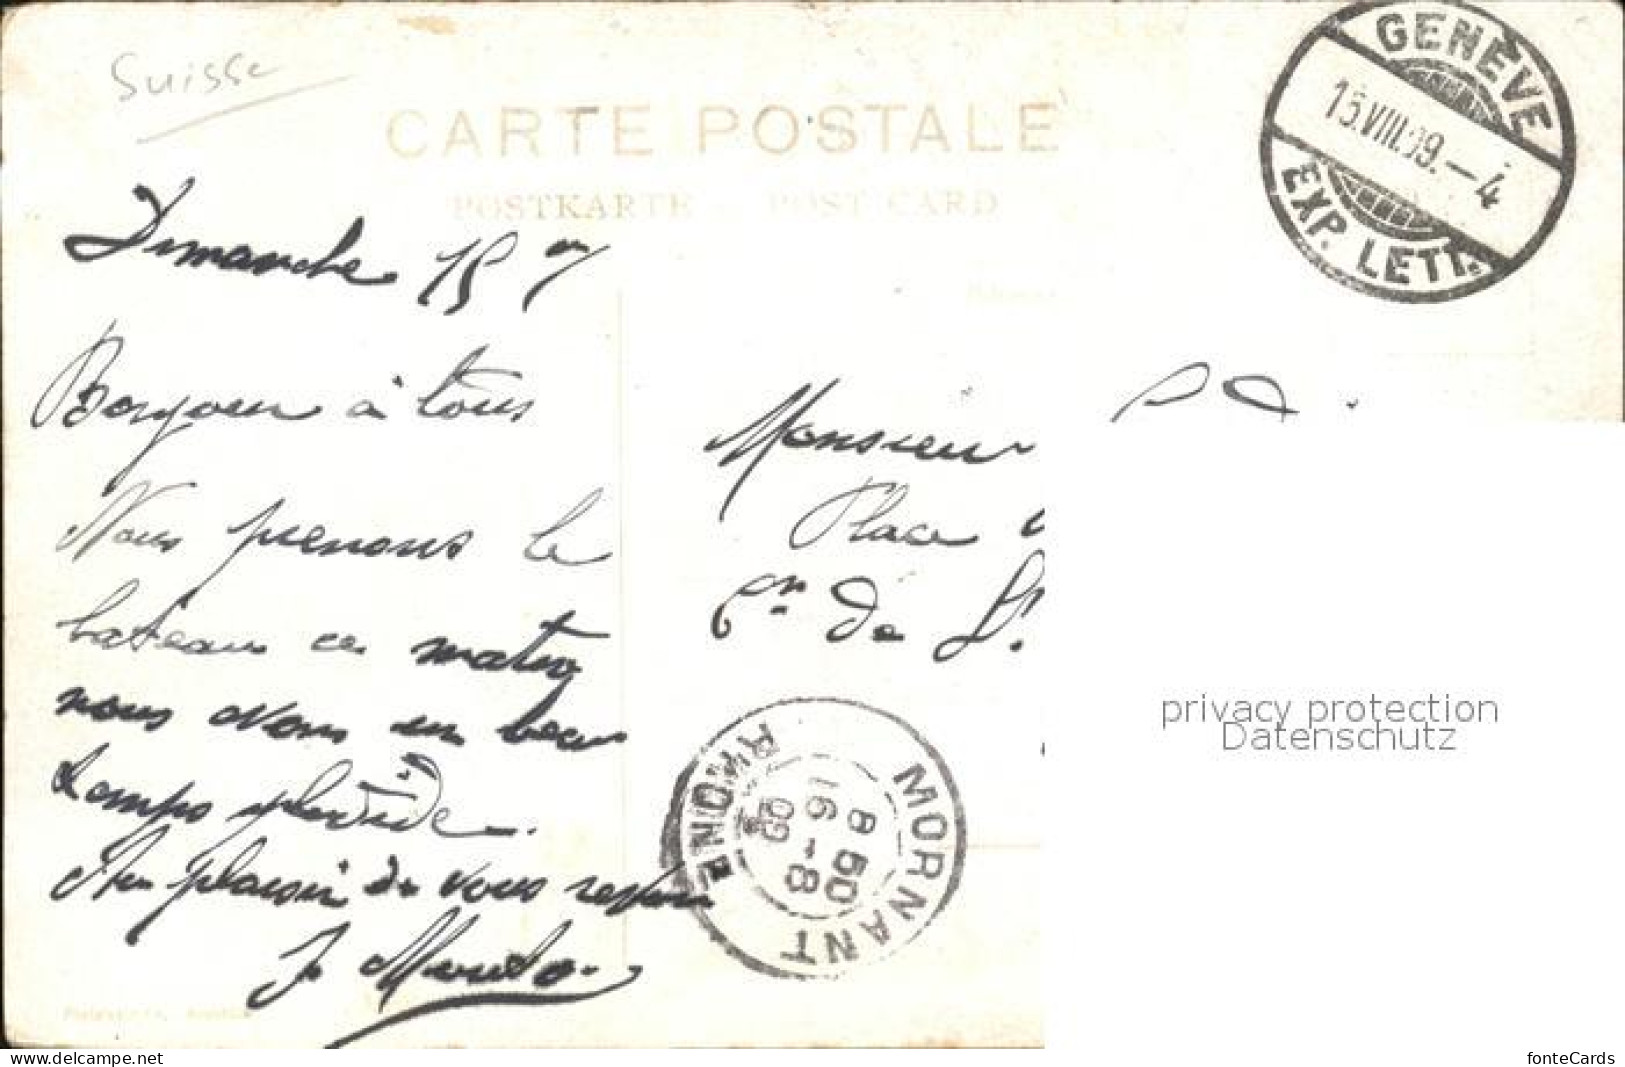 Suisse
CARTE POSTALE
POSTKARTE POST CARD
GENÈVE
15.VIII.09.—4
EXP. LETT.
Dimanche 15
Bonjour à tous
Nous prenons le
bateau ce matin
nous avons un beau
temps splendide.
Au plaisir de vous revoir
Monsieur
Place
de
MORNANT
8 50
16 -8
09
RHONE
privacy protection
Datenschutz
www.delcampe.net
fonteCards